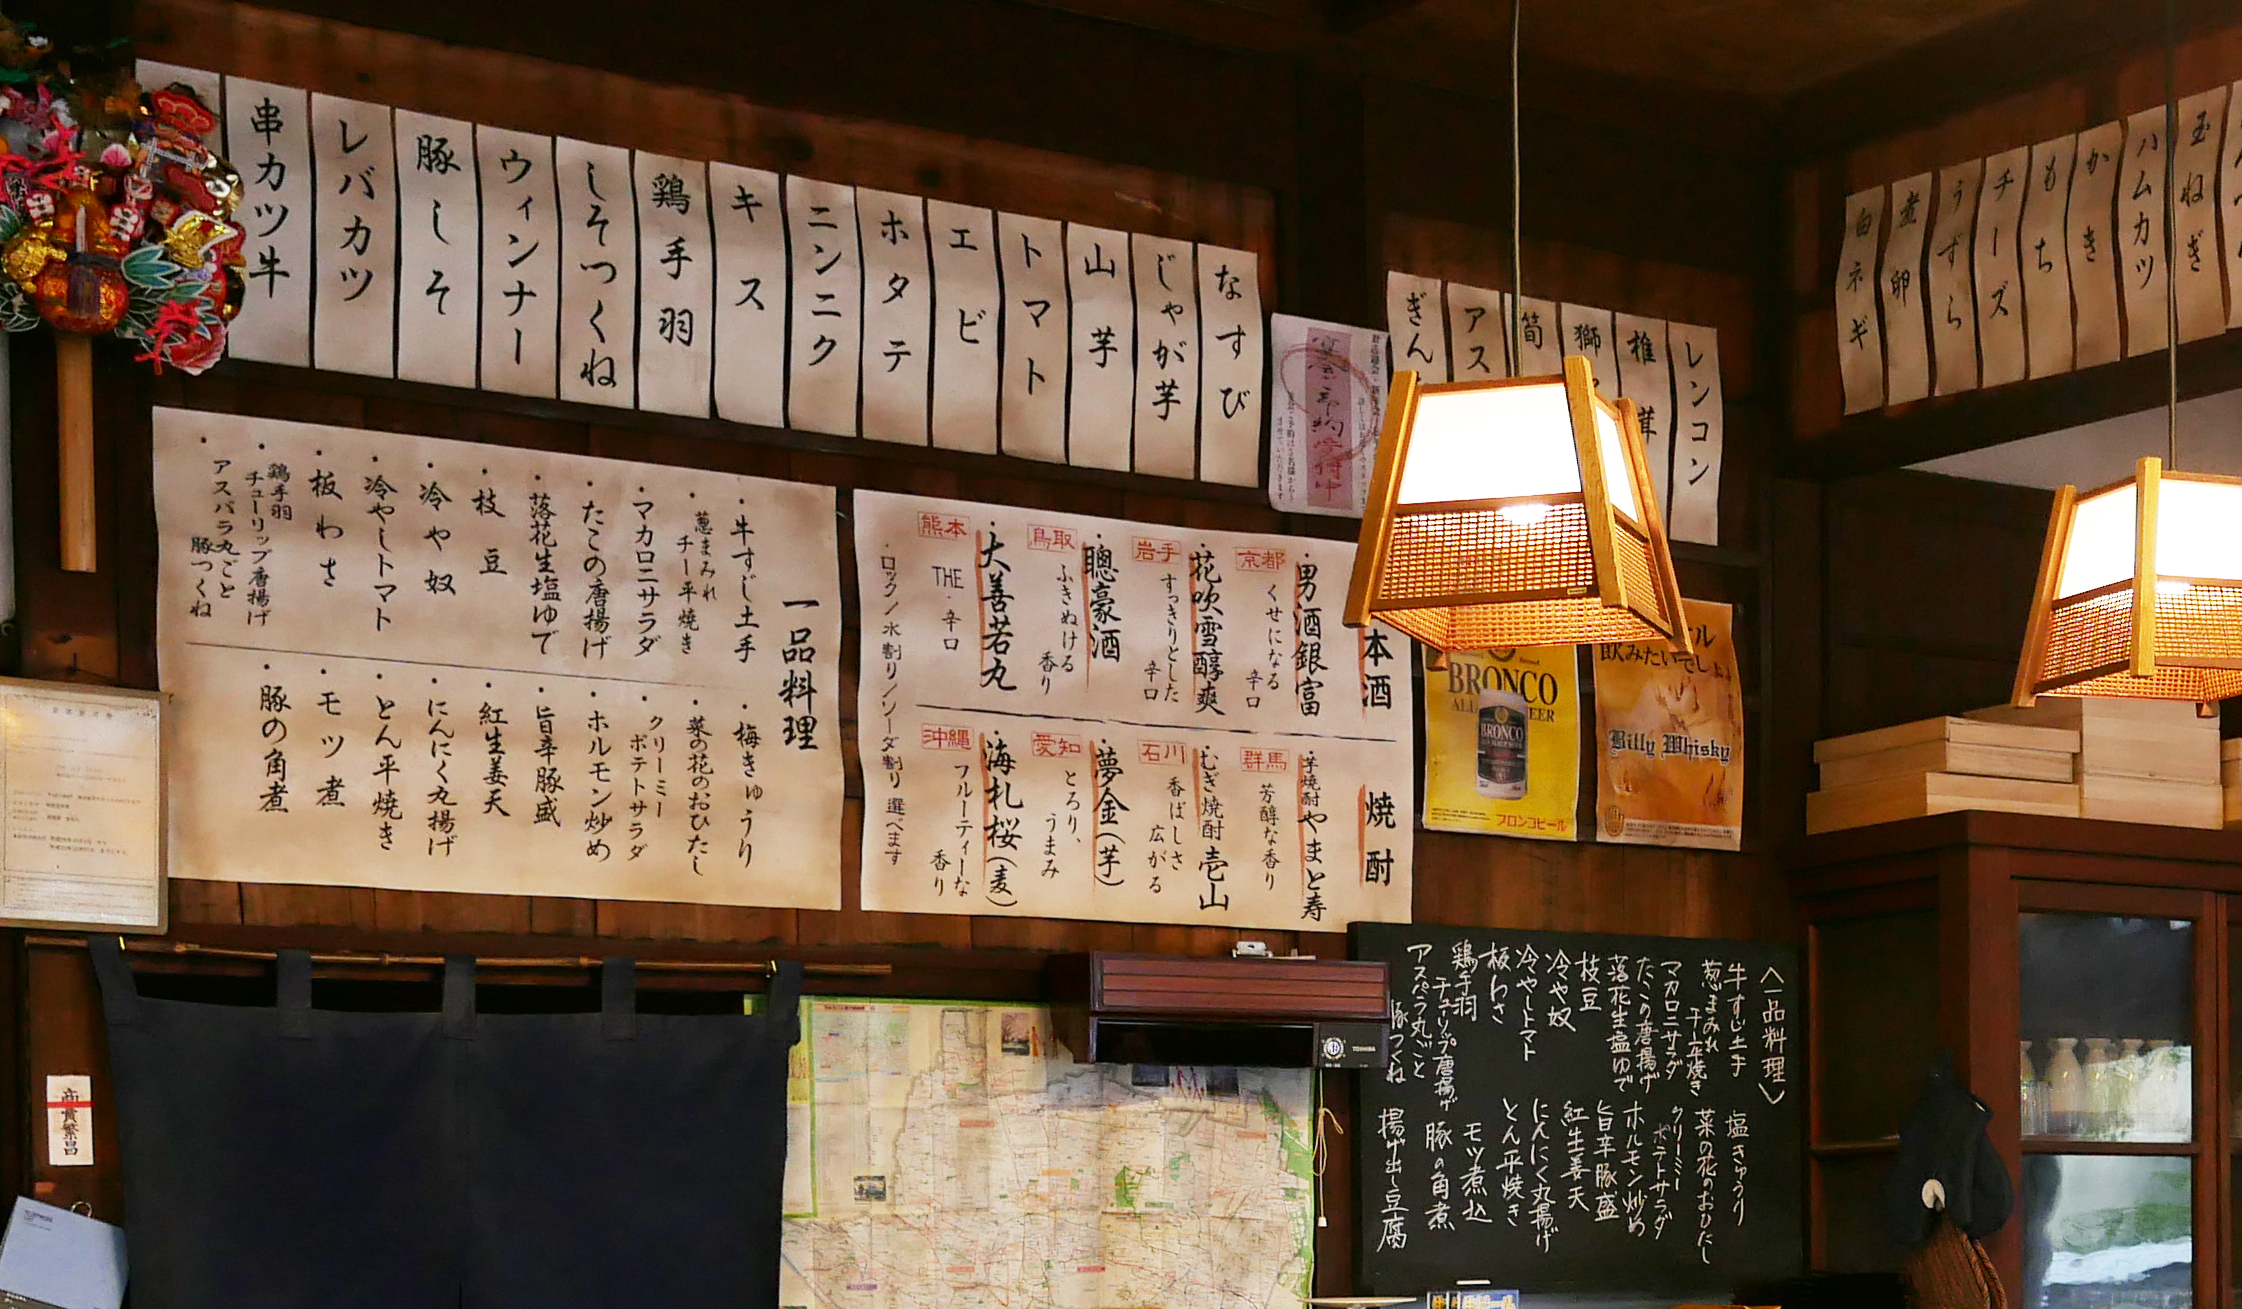 串カツ牛
レバカツ
豚しそ
ウィンナー
しそつくね
鶏手羽
キス
ニンニク
ホタテ
エビ
トマト
山芋
じゃが芋
なすび
ぎん
アス
筍
獅
椎茸
レンコン
白ネギ
煮卵
うずら
チーズ
もち
かき
ハムカツ
玉ねぎ
一品料理
・牛すじ土手
・葱まみれ
チー平焼き
・マカロニサラダ
・たこの唐揚げ
・落花生塩ゆで
・枝豆
・冷や奴
・冷やしトマト
・板わさ
・鶏手羽
チューリップ唐揚げ
・アスパラ丸ごと
豚つくね
・梅きゅうり
・菜の花のおひたし
・クリーミー
ポテトサラダ
・ホルモン炒め
・旨辛豚盛
・紅生姜天
・にんにく丸揚げ
・とん平焼き
・モツ煮
・豚の角煮
本酒
・男酒銀富
京都
くせになる
辛口
・花吹雪醇爽
岩手
すっきりとした
辛口
・聰豪酒
鳥取
ふきぬける
香り
・大善若丸
熊本
THE・辛口
焼酎
・芋焼酎やまと寿
群馬
芳醇な香り
・むぎ焼酎壱山
石川
香ばしさ
広がる
・夢金(芋)
愛知
とろり、
うまみ
・海札桜(麦)
沖縄
フルーティーな
香り
・ロック/水割り/ソーダ割り 選べます
BRONCO
BRONCO
ブロンコビール
飲みたいでしょ
Billy Whisky
〈一品料理〉
牛すじ土手
葱まみれ
チー平焼き
マカロニサラダ
たこの唐揚げ
落花生塩ゆで
枝豆
冷や奴
冷やしトマト
板わさ
鶏手羽
チューリップ唐揚げ
アスパラ丸ごと
豚つくね
塩きゅうり
菜の花のおひたし
クリーミー
ポテトサラダ
ホルモン炒め
旨辛豚盛
紅生姜天
にんにく丸揚げ
とん平焼き
モツ煮込
豚の角煮
揚げ出し豆腐
TOSHIBA
商売繁昌